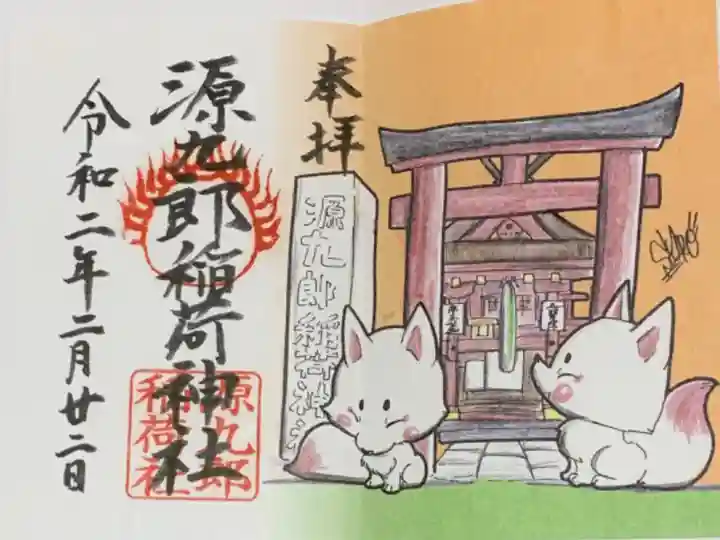 奉拝
源九郎稲荷神社
令和二年二月廿二日
源九郎
稲荷社
源九郎稲荷神社